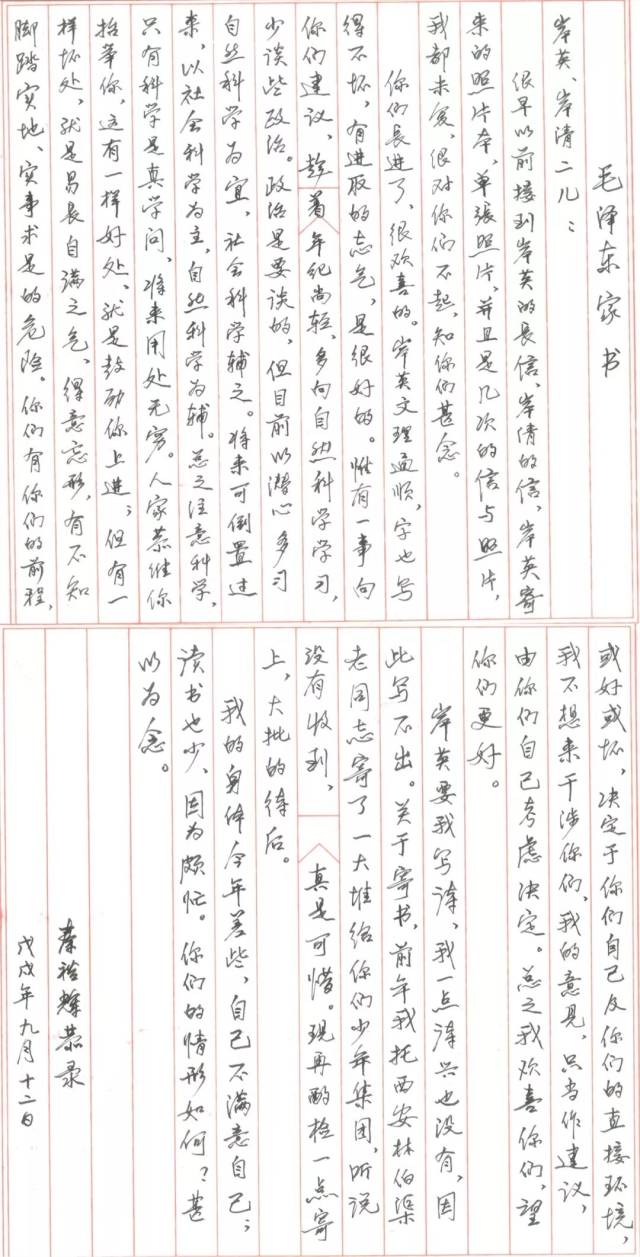 毛泽东家书
岸英、岸清二儿：
很早以前接到岸英的长信，岸倩的信，岸英寄
来的照片本，单张照片，并且是几次的信与照片，
我都未复，很对你们不起，知你们甚念。
你们长进了，很欢喜的。岸英文理通顺，字也写
得不坏，有进取的志气，是很好的。惟有一事向
你们建议，趁着年纪尚轻，多向自然科学学习，
少谈些政治。政治是要谈的，但目前以潜心多习
自然科学为宜，社会科学辅之。将来可倒置过
来，以社会科学为主，自然科学为辅。总之注意科学，
只有科学是真学问，将来用处无穷。人家恭维你
抬举你，这有一样好处，就是鼓励你上进；但有一
样坏处，就是易长自满之气，得意忘形，有不知
脚踏实地、实事求是的危险。你们有你们的前程，
或好或坏，决定于你们自己及你们的直接环境，
我不想来干涉你们，我的意见，只当作建议，
由你们自己考虑决定。总之我欢喜你们，望
你们更好。
岸英要我写诗，我一点诗兴也没有，因
此写不出。关于寄书，前年我托西安林伯渠
老同志寄了一大堆给你们少年集团，听说
没有收到，真是可惜。现再酌检一点寄
上，大批的待后。
我的身体今年差些，自己不满意自己；
读书也少，因为颇忙。你们的情形如何？甚
以为念。
恭录
戊戌年九月十二日